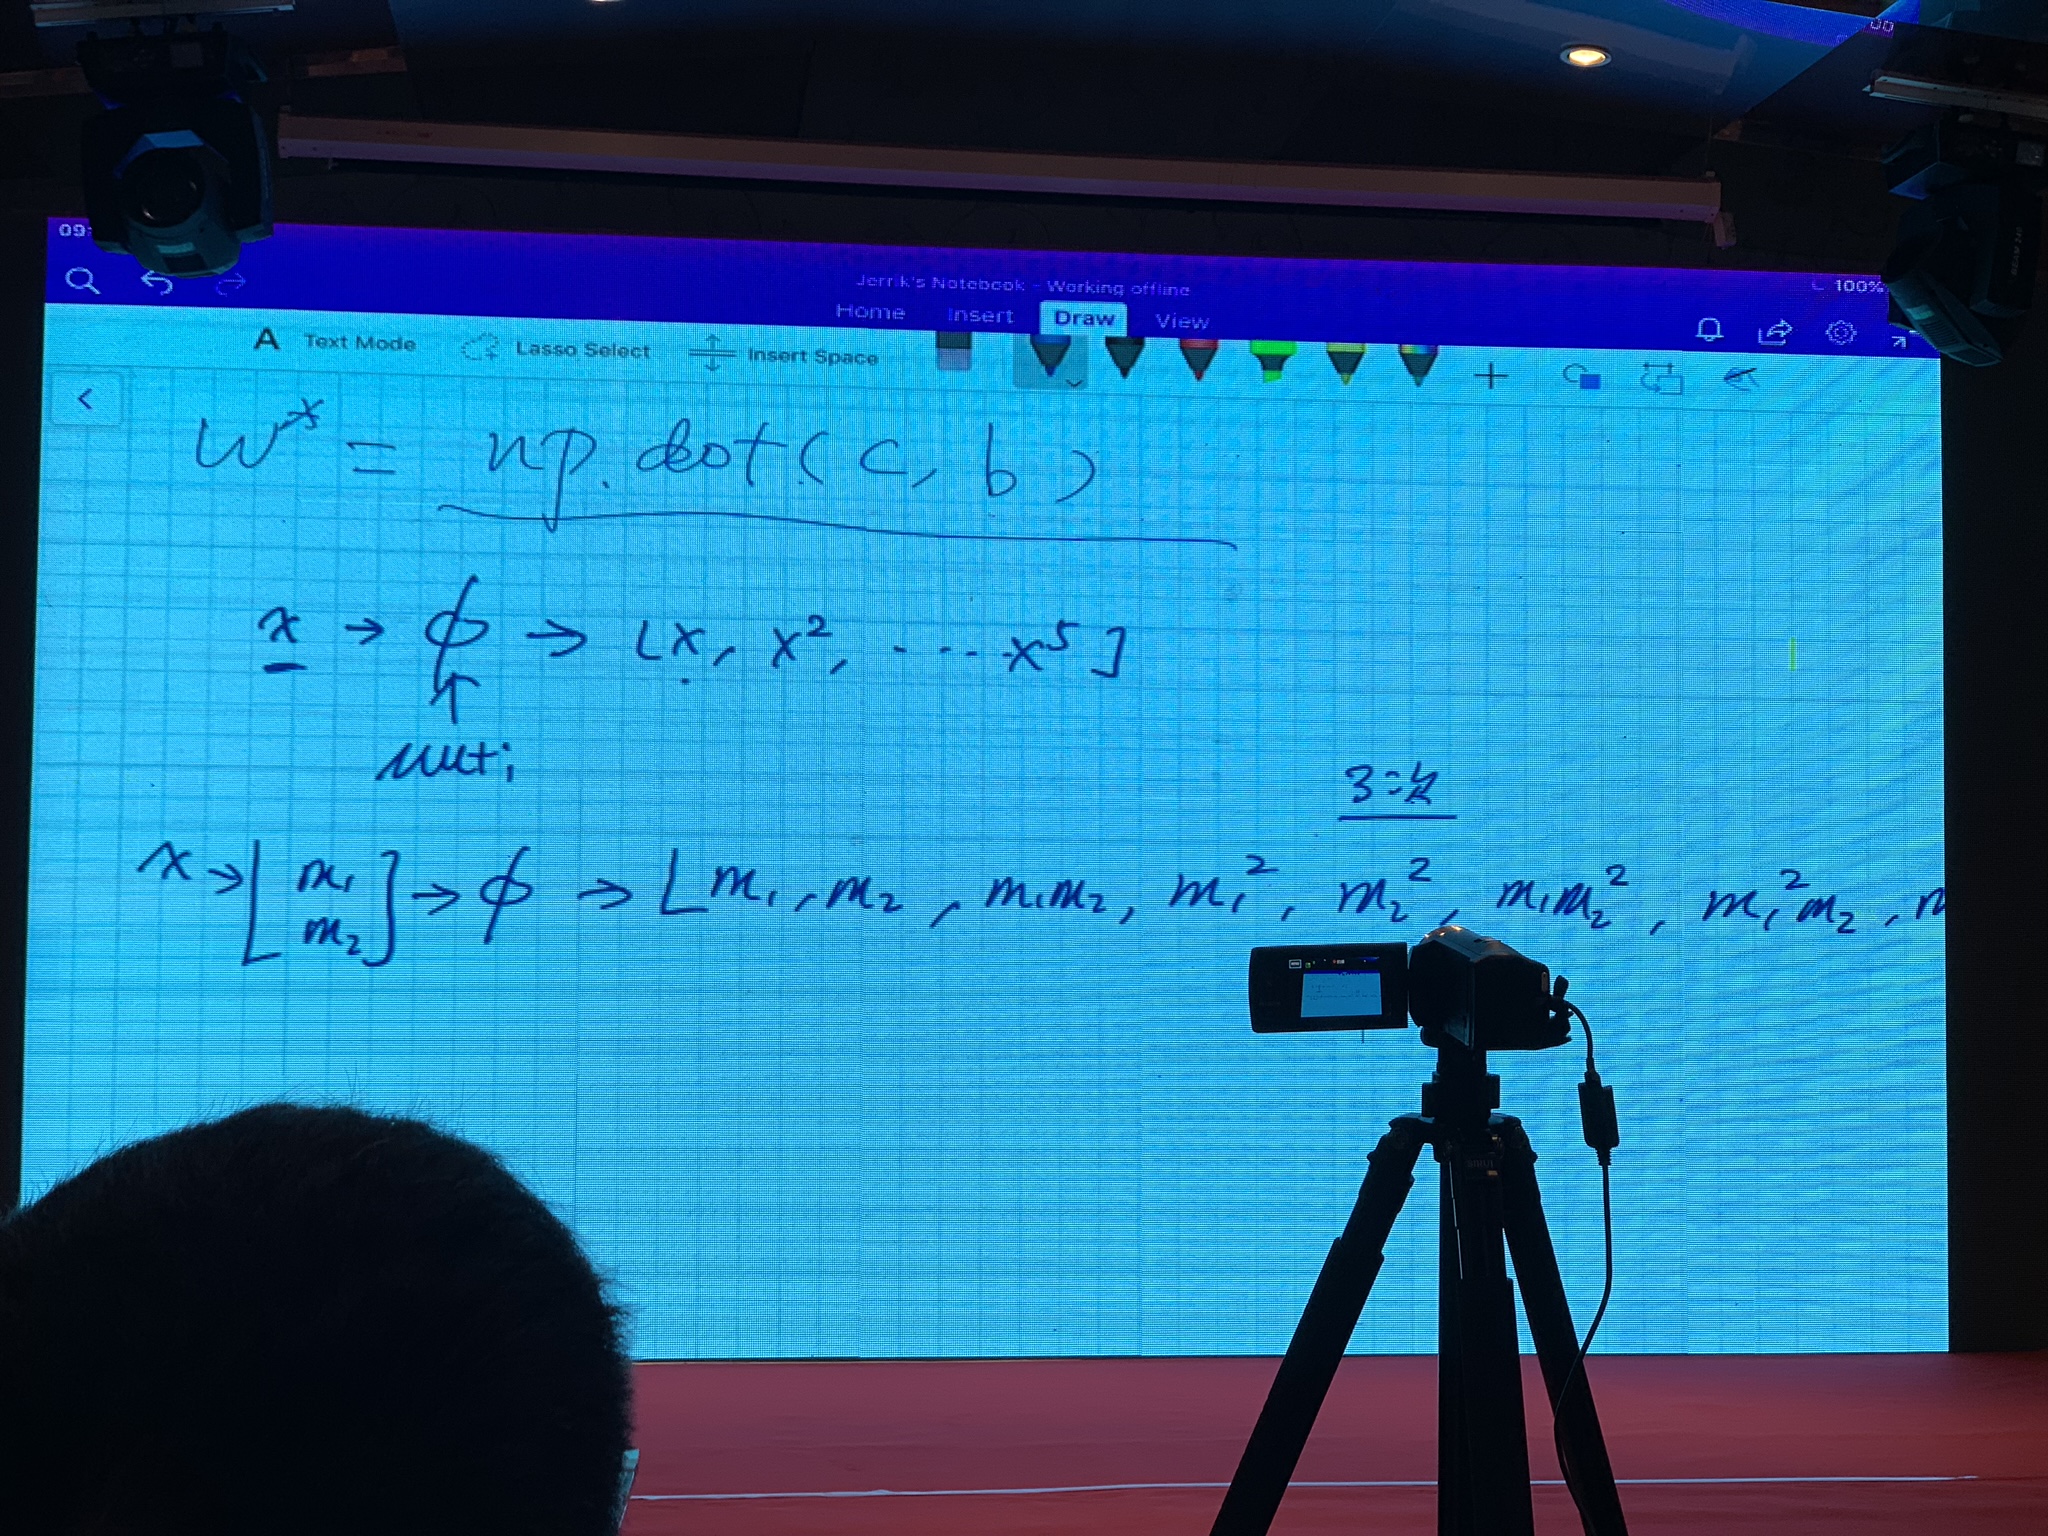 09:
100%
Jerrik's Notebook - Working offline
Home Insert Draw View
A Text Mode Lasso Select Insert Space
W* = np.dot(c, b)
x → ϕ → [x, x², ... x⁵]
↑
3次
x → [m₁ m₂] → ϕ → [m₁, m₂, m₁m₂, m₁², m₂², m₁m₂², m₁²m₂, m